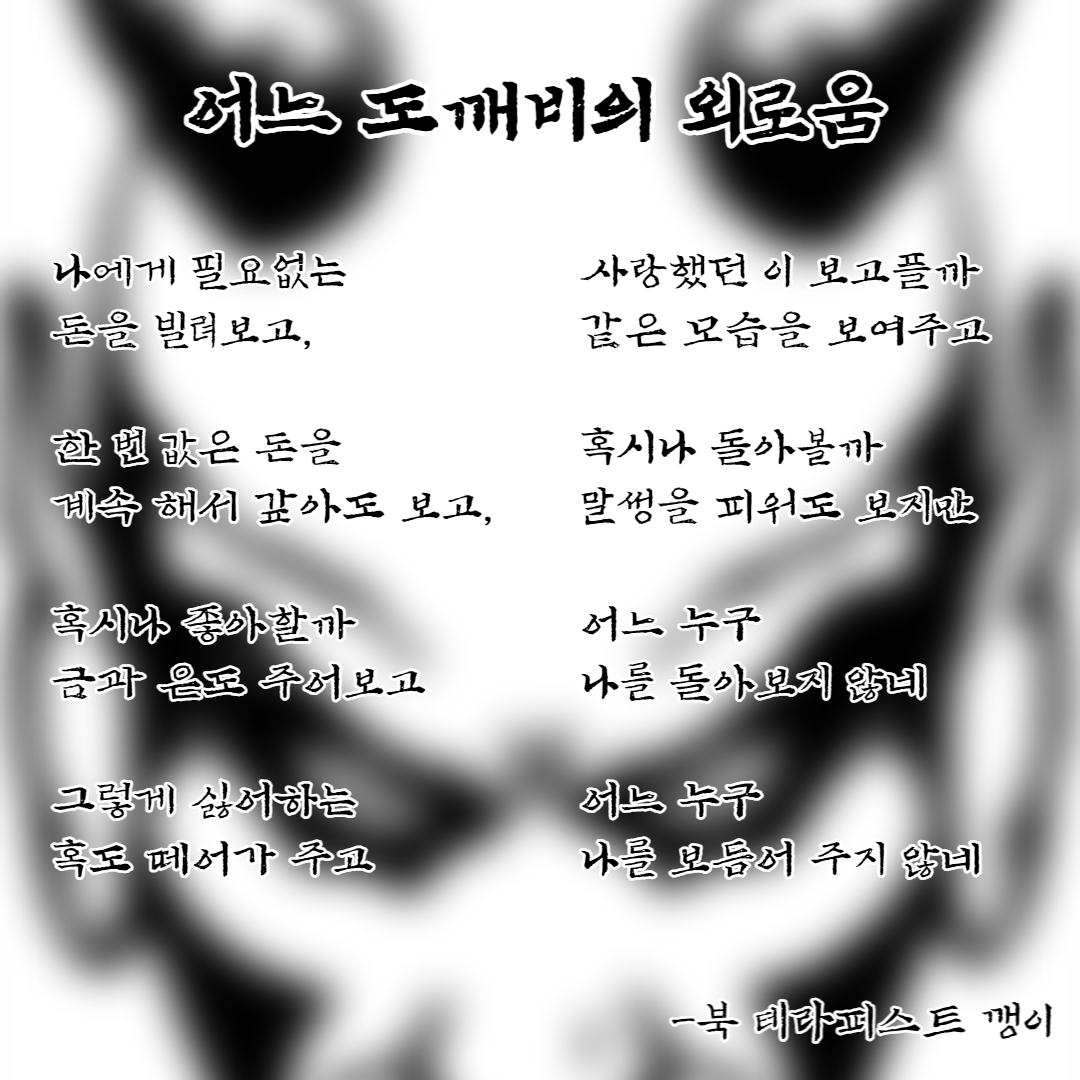 어느 도깨비의 외로움
나에게 필요없는
돈을 빌려보고,
한 번 값은 돈을
계속 해서 갚아도 보고,
혹시나 좋아할까
금과 은도 주어보고
그렇게 싫어하는
혹도 떼어가 주고
사랑했던 이 보고플까
같은 모습을 보여주고
혹시나 돌아볼까
말썽을 피워도 보지만
어느 누구
나를 돌아보지 않네
어느 누구
나를 보듬어 주지 않네
-북 테라피스트 깽이